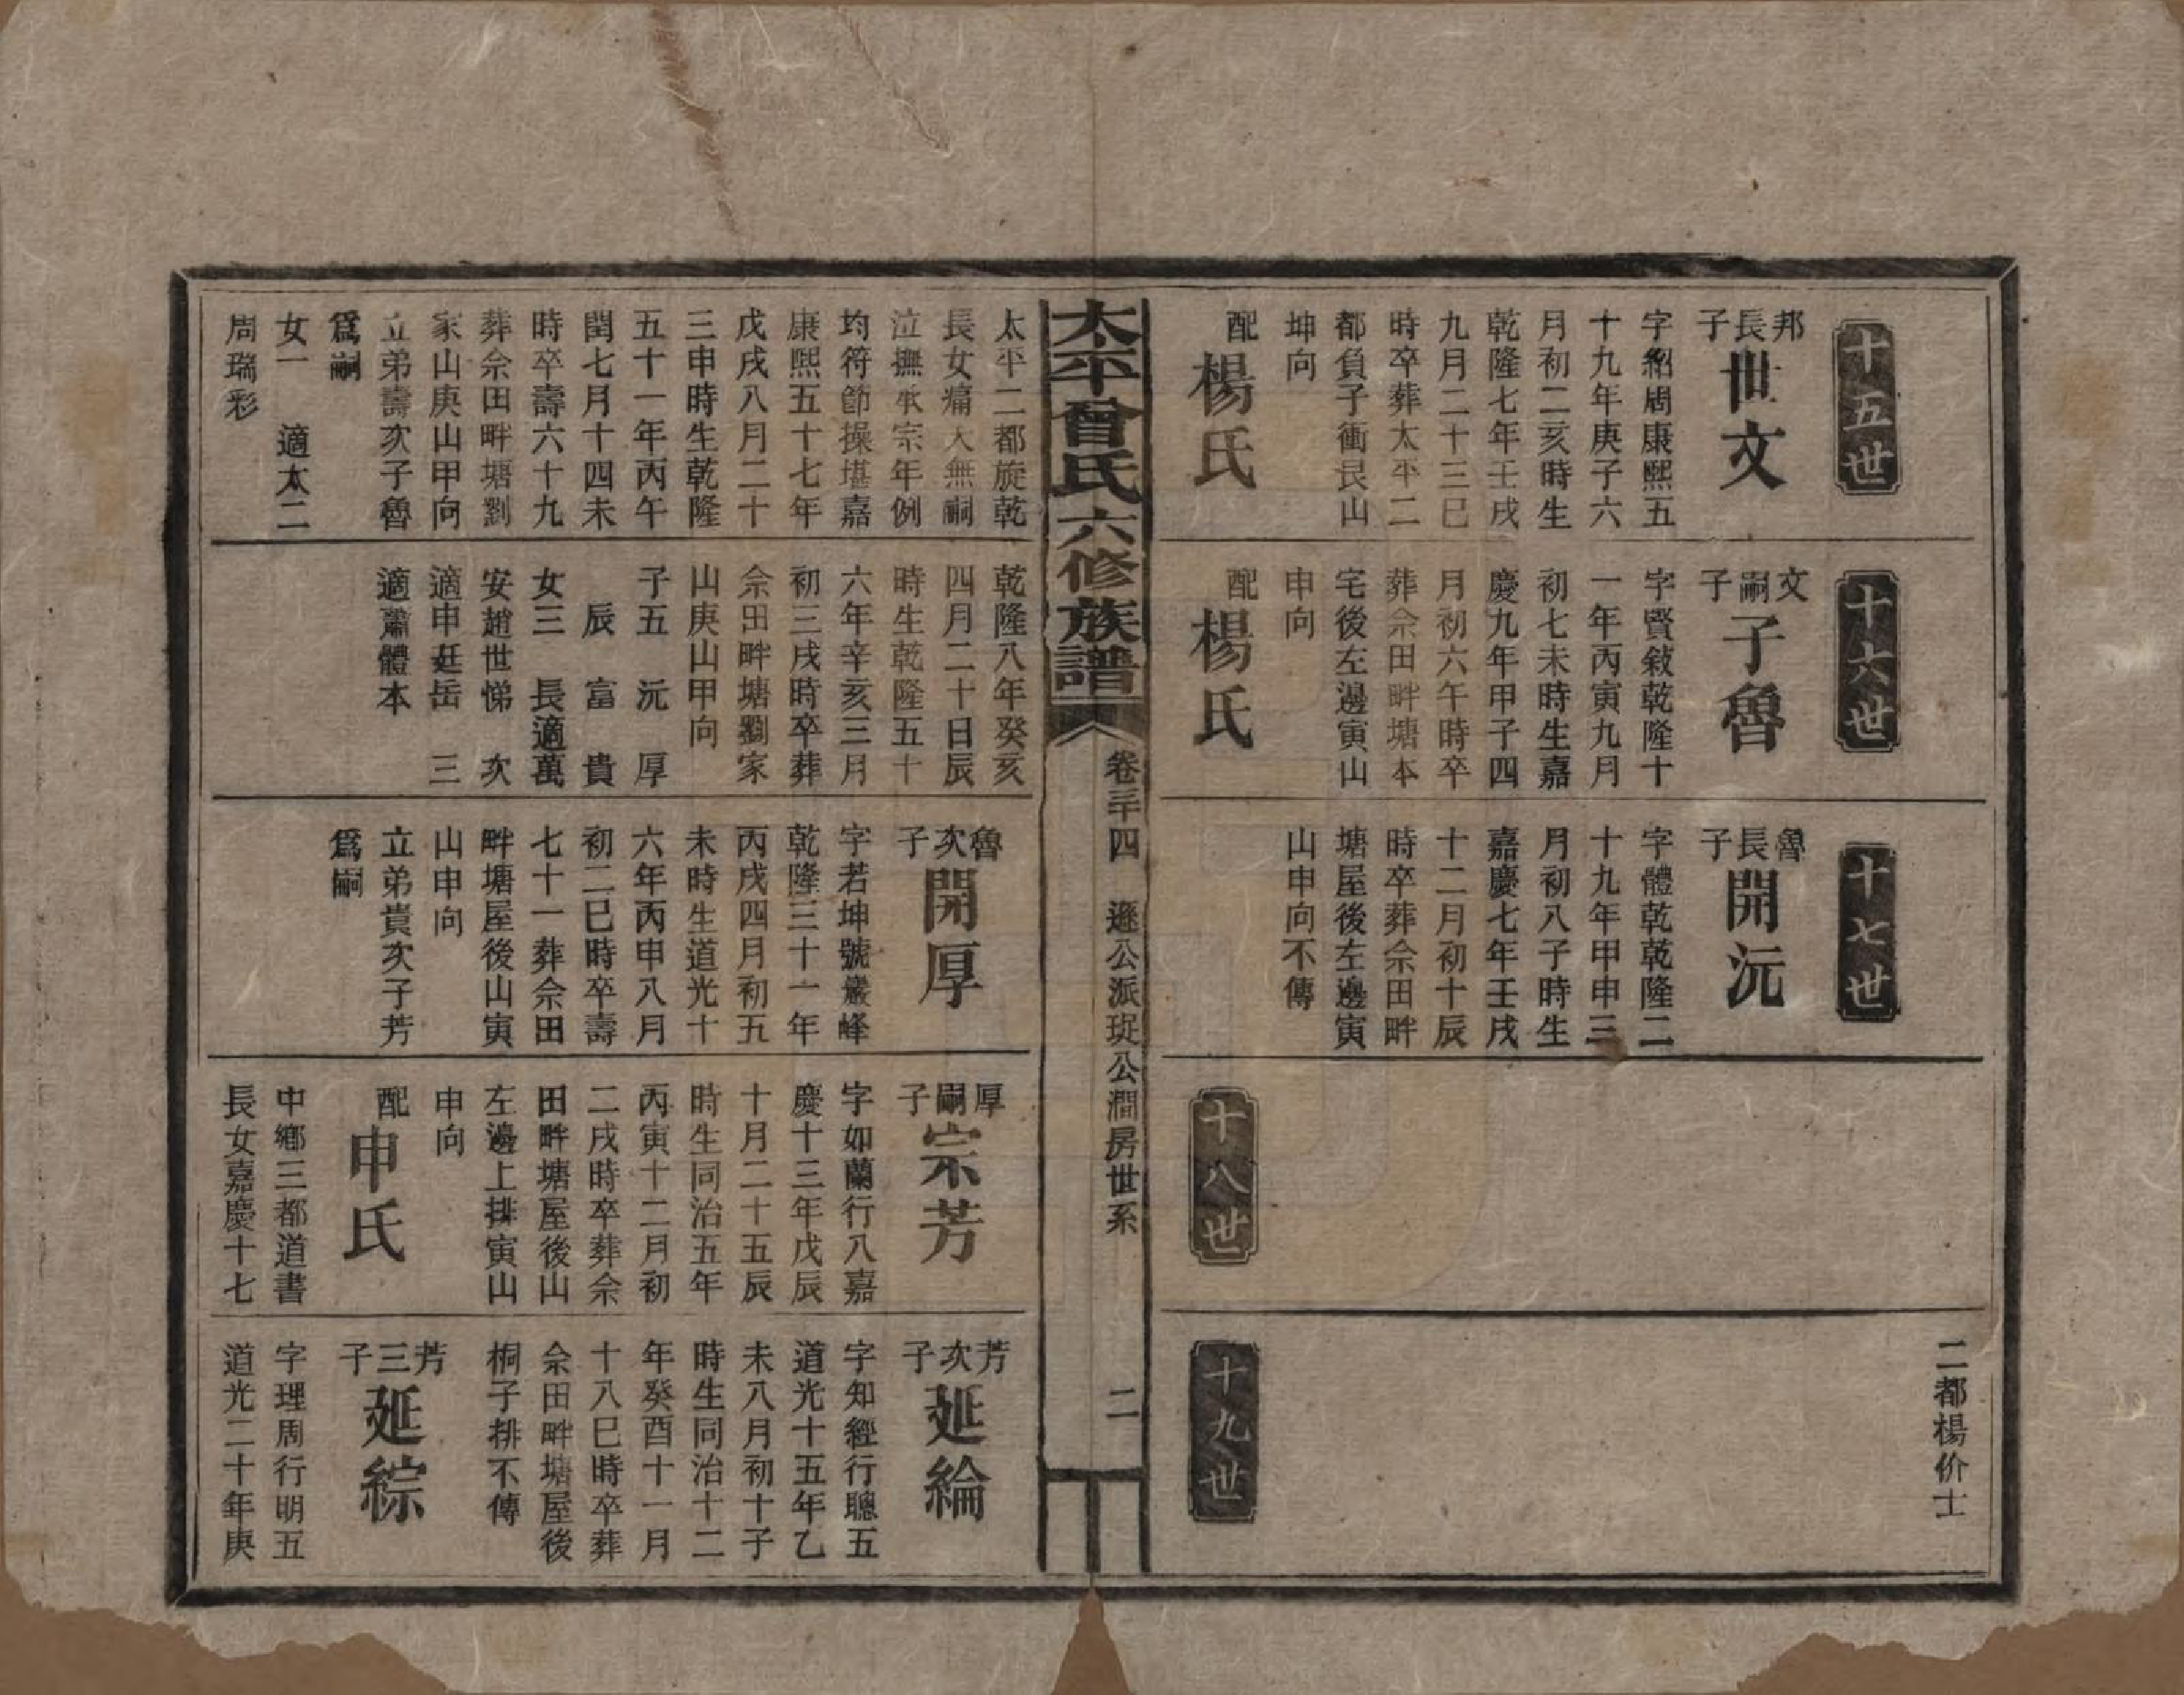 十五世
邦長子
世文
字紹周康熙五
十九年庚子六
月初二亥時生
乾隆七年壬戌
九月二十三巳
時卒葬太平二
都負子衝艮山
坤向
配
楊氏
十六世
文嗣子
子魯
字賢敘乾隆十
一年丙寅九月
初七未時生嘉
慶九年甲子四
月初六午時卒
葬佘田畔塘本
宅後左邊寅山
申向
配
楊氏
十七世
魯長子
開沅
字體乾乾隆二
十九年甲申三
月初八子時生
嘉慶七年壬戌
十二月初十辰
時卒葬佘田畔
塘屋後左邊寅
山申向不傳
十八世
二都楊价士
十九世
太平曾氏六修族譜
卷三十四 遜公派珽公澗房世系
二
太平二都旋乾
長女痛夫無嗣
泣撫承宗年例
均符節操堪嘉
康熙五十七年
戊戌八月二十
三申時生乾隆
五十一年丙午
閏七月十四未
時卒壽六十九
葬佘田畔塘劉
家山庚山甲向
立弟壽次子魯
爲嗣
女一 適太二
周瑞彩
乾隆八年癸亥
四月二十日辰
時生乾隆五十
六年辛亥三月
初三戌時卒葬
佘田畔塘劉家
山庚山甲向
子五 沅 厚
辰 富 貴
女三 長適萬
安趙世悌 次
適申廷岳 三
適蕭體本
魯次子
開厚
字若坤號巖峰
乾隆三十一年
丙戌四月初五
未時生道光十
六年丙申八月
初二巳時卒壽
七十一葬佘田
畔塘屋後山寅
山申向
立弟貴次子芳
爲嗣
厚嗣子
宗芳
字如蘭行八嘉
慶十三年戊辰
十月二十五辰
時生同治五年
丙寅十二月初
二戌時卒葬佘
田畔塘屋後山
左邊上排寅山
申向
配
申氏
中鄉三都道書
長女嘉慶十七
芳次子
延綸
字知經行聰五
道光十五年乙
未八月初十子
時生同治十二
年癸酉十一月
十八巳時卒葬
佘田畔塘屋後
桐子排不傳
芳三子
延綜
字理周行明五
道光二十年庚